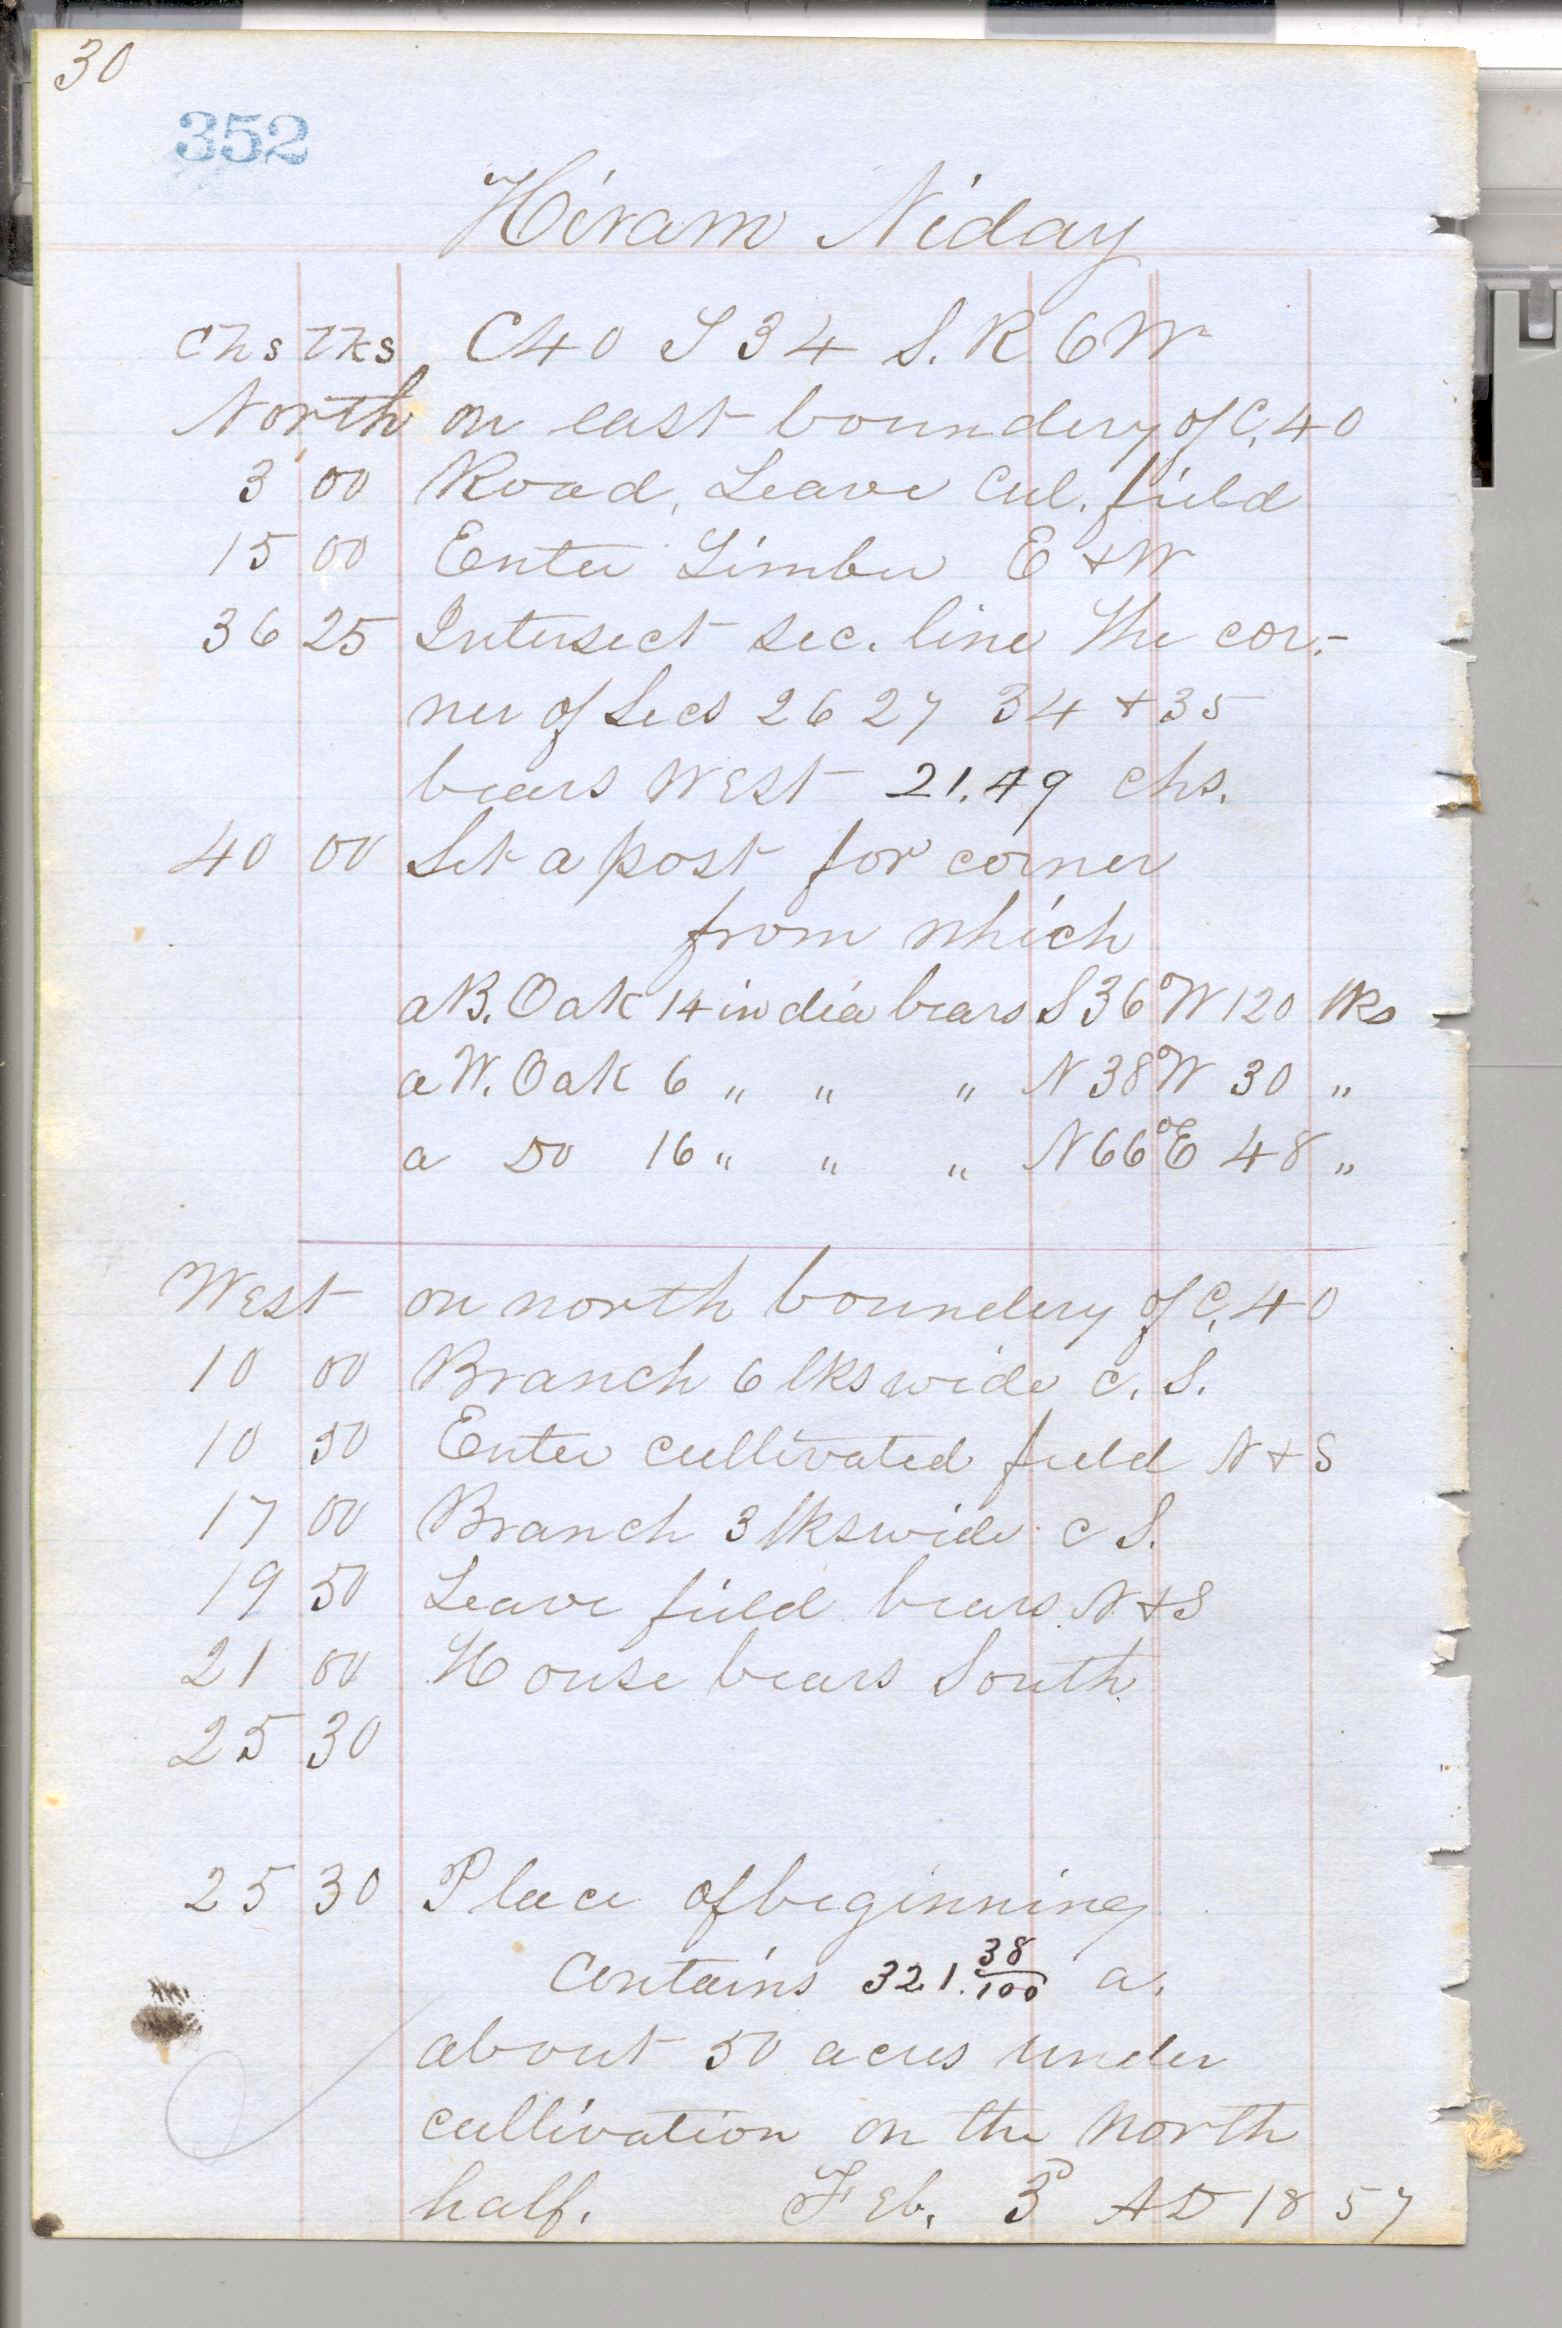 30
352
Hiram Niday
Chs lks C 40 T 34 S. R 6 W
North on east boundery of C, 40
3 00 Road, Leave Cul. field
15 00 Enter Timber E & W
36 25 Intersect sec. line The cor-
ner of Secs 26 27 34 & 35
bears West 21.49 chs.
40 00 Set a post for corner
from which
a B. Oak 14 in dia bears S 36° W 120 lks
a W. Oak 6 " " " N 38° W 30 "
a Do 16 " " " N 66° E 48 "
West on north boundery of C, 40
10 00 Branch 6 lks wide c. S.
10 50 Enter cultivated field N & S
17 00 Branch 3 lks wide c S.
19 50 Leave field bears N & S
21 00 House bears South
25 30
25 30 Place of beginning
Contains 321. 38/100 a.
about 50 acres under
cultivation on the north
half. Feb. 3d AD 1857